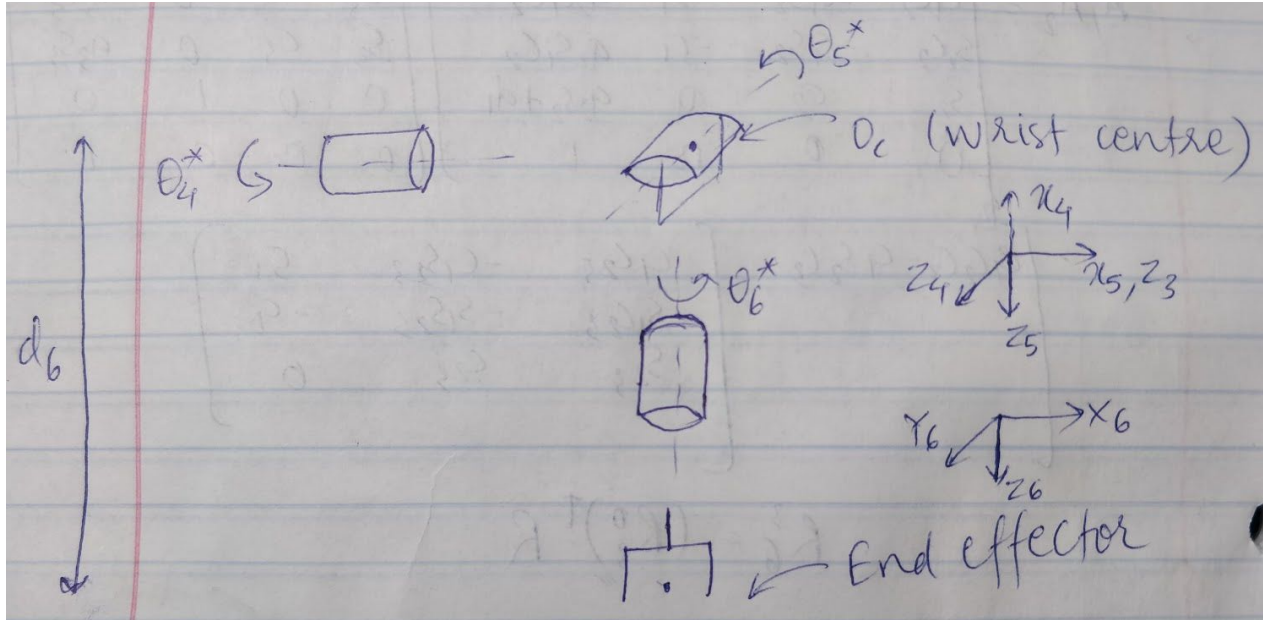 θ₅*
θ₄*
O_c (wrist centre)
x₄
z₄
x₅, z₃
z₅
θ₆*
d₆
Y₆
X₆
z₆
End effector